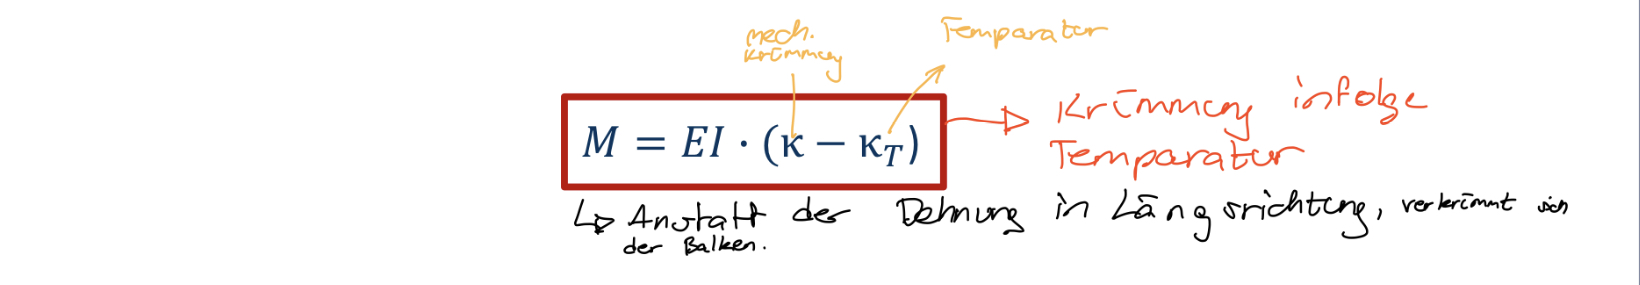 mech.
Krümmung
Temparatur
M = EI · (κ − κ_T)
Krümmung infolge
Temparatur
↳ Anstatt der Dehnung in Längsrichtung, verkrümmt sich
der Balken.